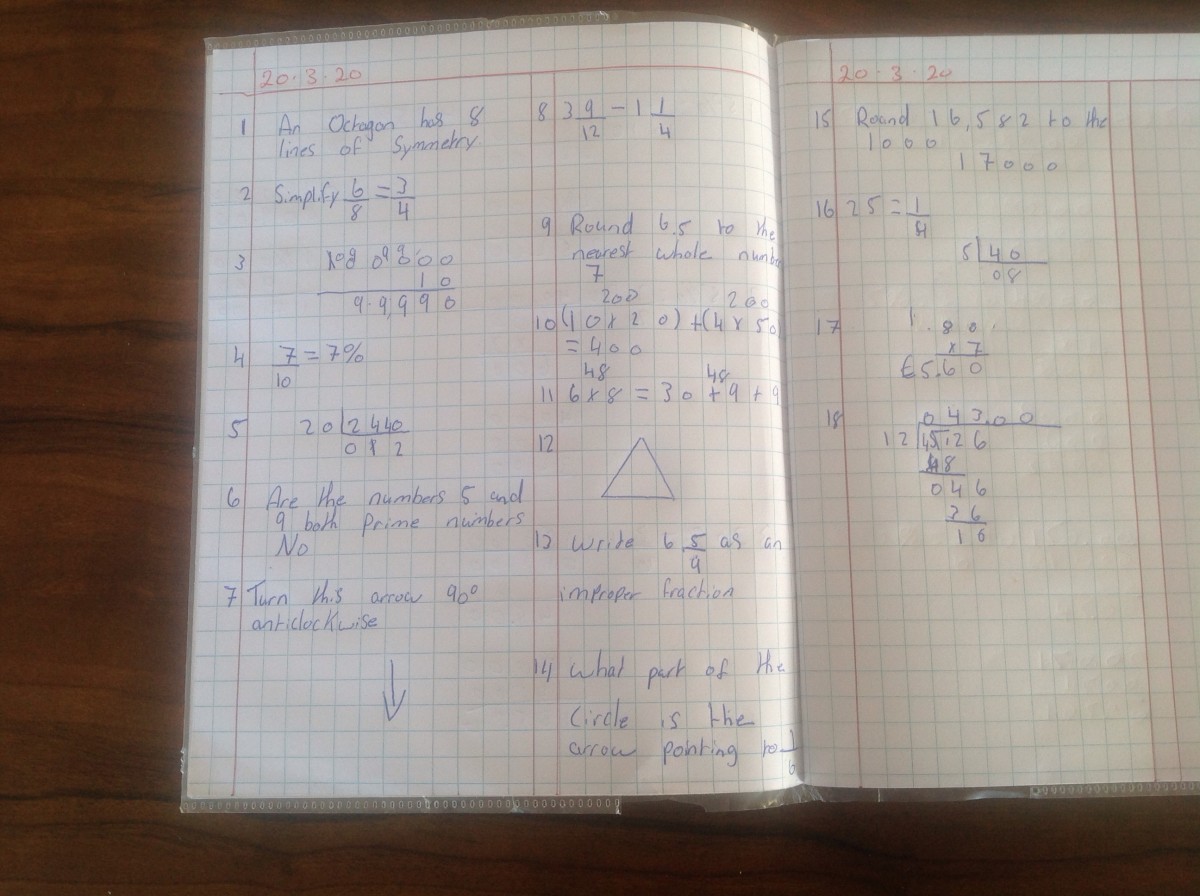 20.3.20
1 An Octagon has 8
lines of Symmetry
2 Simplify 6/8 = 3/4
3
10
99,990
4 7/10 = 7%
5 20 2440
012
6 Are the numbers 5 and
9 both prime numbers
No
7 Turn this arrow 90°
anticlockwise
8 3 9/12 - 1 1/4
9 Round 6.5 to the
nearest whole
7
200 200
10 (10 x 20) + (4 x 50
= 400
48 48
11 6 x 8 = 30 + 9 + 9
12
13 Write 6 5/9 as an
improper fraction
14 What part of the
Circle is the
arrow pointing to 1/6
20.3.20
15 Round 16,582 to the
1000
17000
16 25 = 1/4
5 40
08
17 .80
x 7
€5.60
18 043.00
12
48
046
36
16